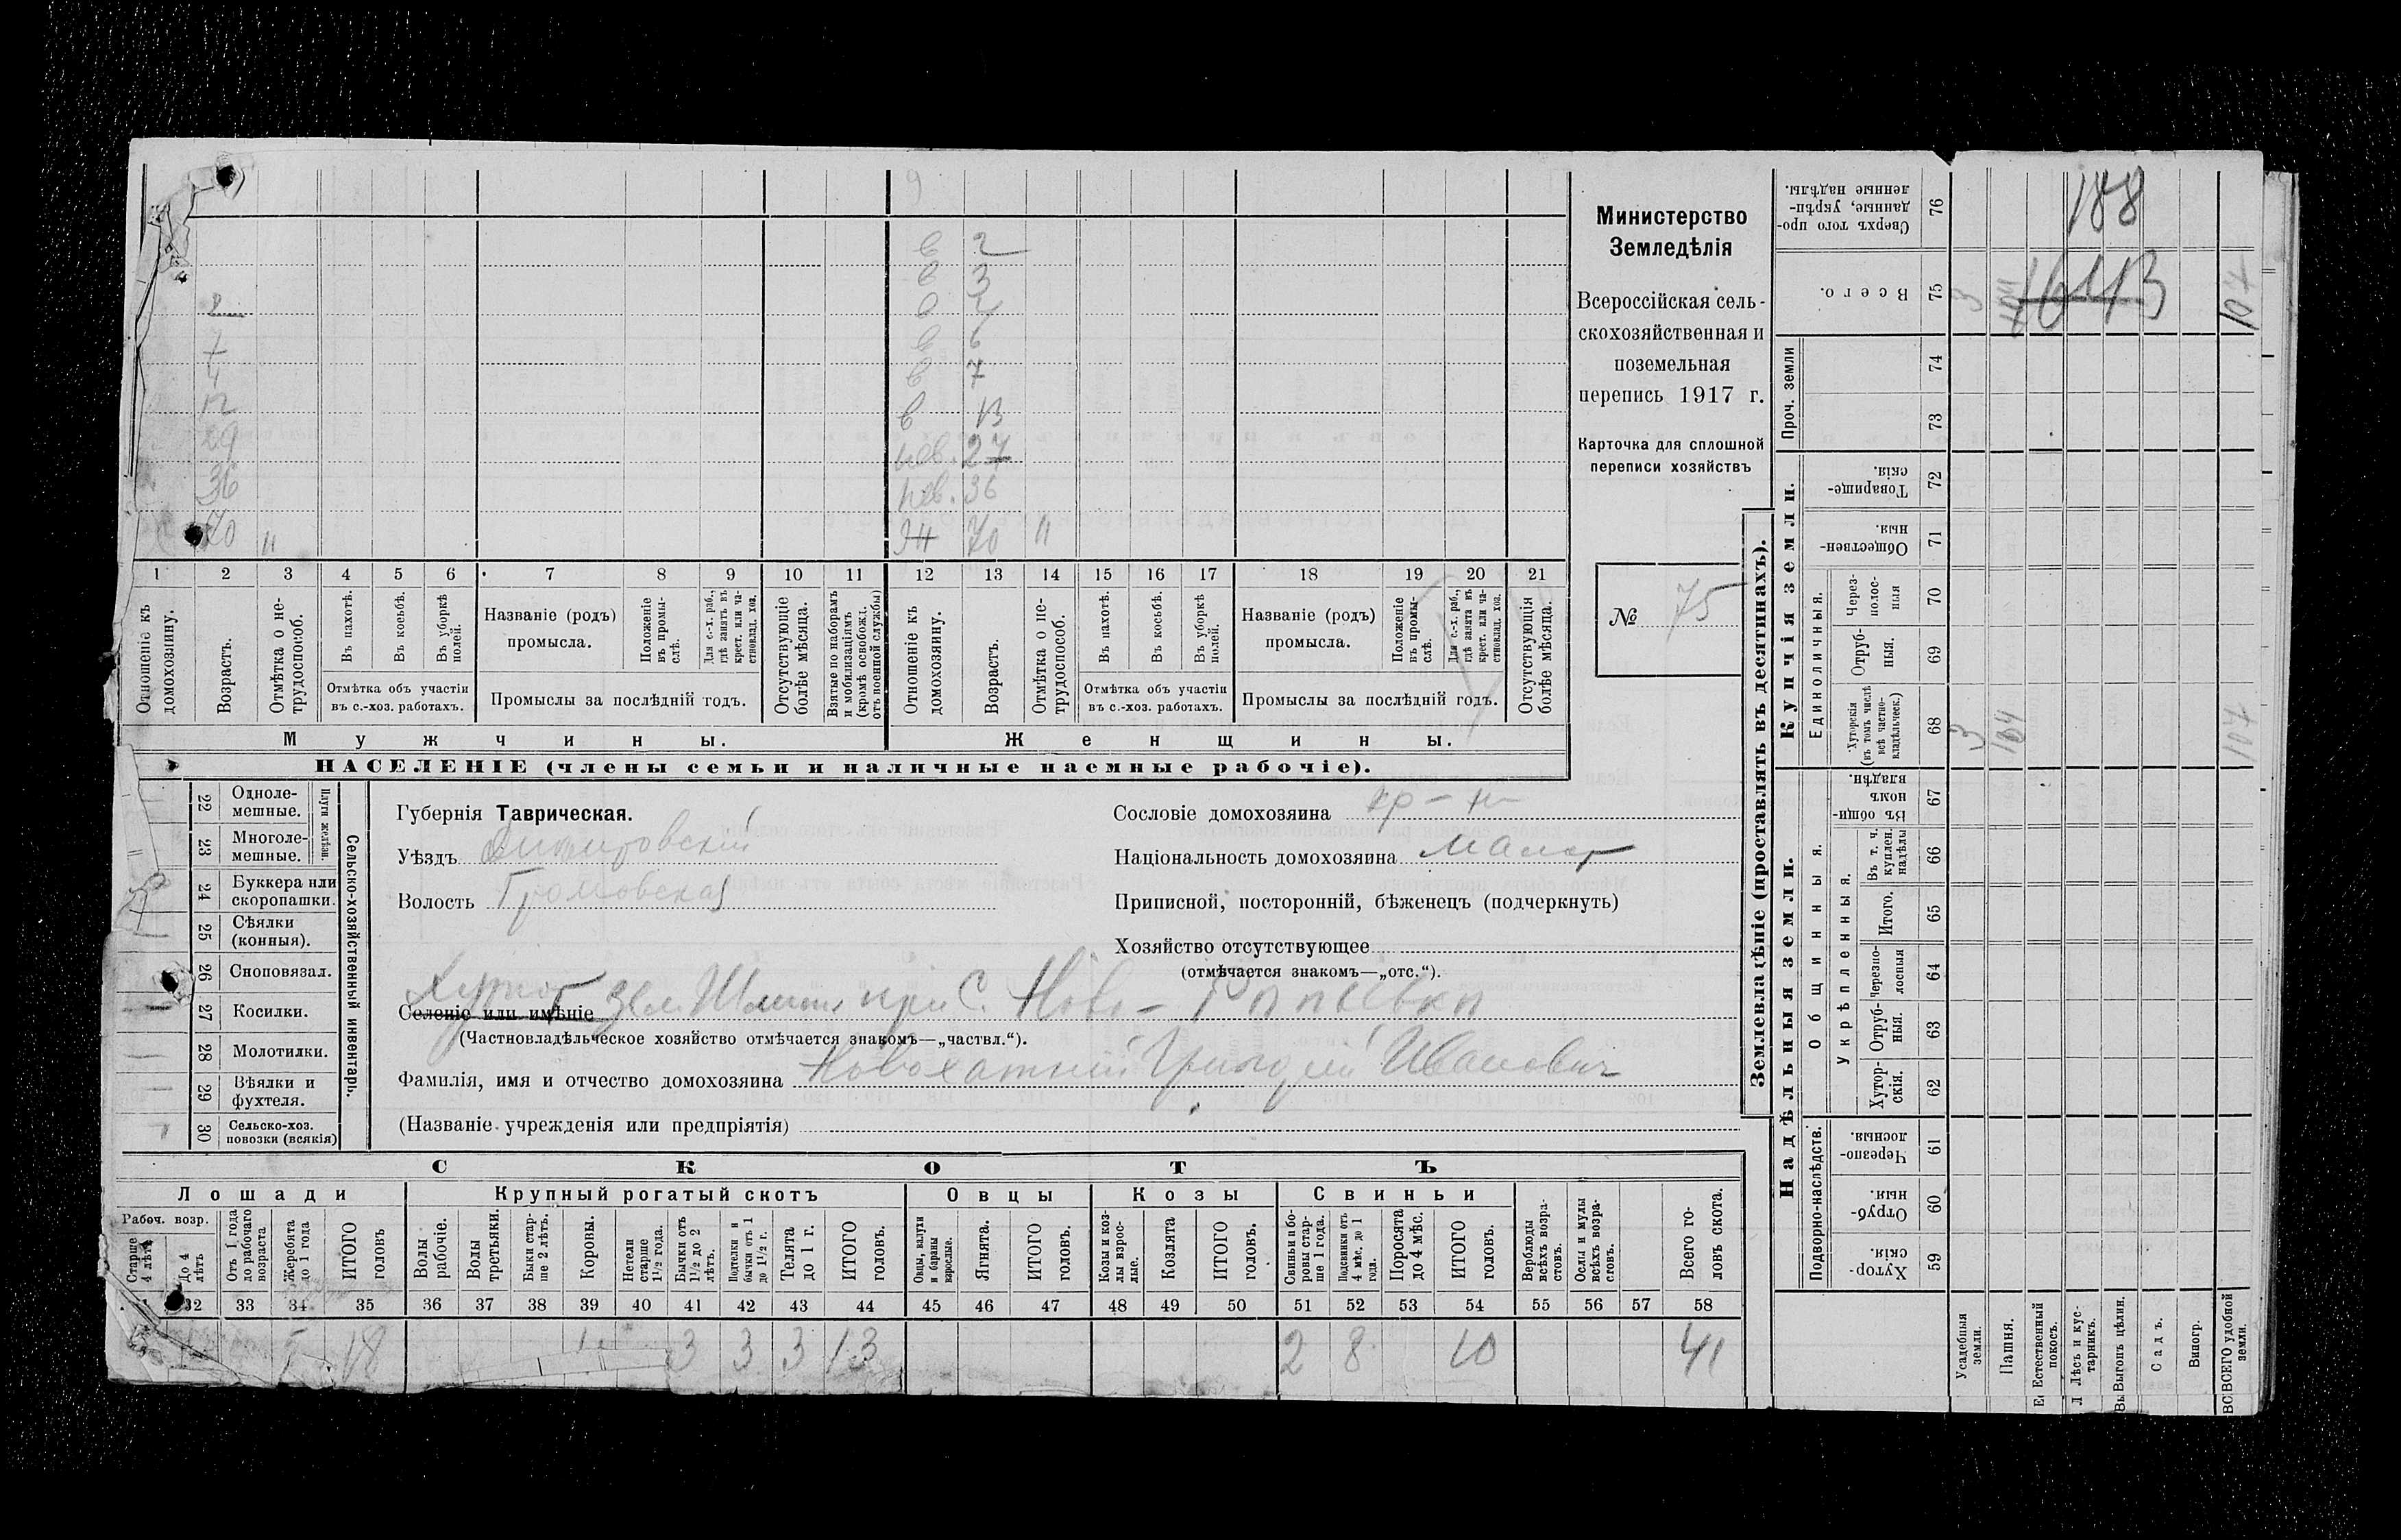 9
в 2
в 3
в
в 6
4 в 7
12 в 13
29 нев. 27
36 нев. 36
70 " 70 "
1 2 3 4 5 6 7 8 9 10 11 12 13 14 15 16 17 18 19 20 21
Отношеніе къ домохозяину.
Возрастъ.
Отмѣтка о нетрудоспособ.
Въ пахотѣ.
Въ косьбѣ.
Въ уборкѣ полей.
Отмѣтка объ участіи
въ с.-хоз. работахъ.
Названіе (родъ)
промысла.
Положеніе въ промыслѣ.
Для с.-х. раб., гдѣ занятъ въ крест. или частновлад. хоз.
Промыслы за послѣдній годъ.
Отсутствующіе болѣе мѣсяца.
Взятые по наборамъ и мобилизаціямъ (кромѣ освобожд. отъ военной службы)
Отношеніе къ домохозяину.
Возрастъ.
Отмѣтка о нетрудоспособ.
Въ пахотѣ.
Въ косьбѣ.
Въ уборкѣ полей.
Отмѣтка объ участіи
въ с.-хоз. работахъ.
Названіе (родъ)
промысла.
Положеніе въ промыслѣ.
Для с.-х. раб., гдѣ занята въ крест. или частновлад. хоз.
Промыслы за послѣдній годъ.
Отсутствующія болѣе мѣсяца.
Мужчины.
Женщины.
НАСЕЛЕНІЕ (члены семьи и наличные наемные рабочіе).
Министерство
Земледѣлія
Всероссійская сель-
скохозяйственная и
поземельная
перепись 1917 г.
Карточка для сплошной
переписи хозяйствъ
№ 75
22 Однолемешные.
23 Многолемешные.
Плуги желѣзн.
24 Буккера или скоропашки.
25 Сѣялки (конныя).
26 Сноповязал.
27 Косилки.
28 Молотилки.
29 Вѣялки и фухтеля.
30 Сельско-хоз. повозки (всякія)
Сельско-хозяйственный инвентарь.
Губернія Таврическая.
Уѣздъ
Волость Громовская
Селеніе или имѣніе Хутор зем. при с. Ново-
(Частновладѣльческое хозяйство отмѣчается знакомъ—„частвл.“).
Фамилія, имя и отчество домохозяина Новохатній Григорій Иванович
(Названіе учрежденія или предпріятія)
Сословіе домохозяина кр-н
Національность домохозяина малор
Приписной, посторонній, бѣженецъ (подчеркнуть)
Хозяйство отсутствующее
(отмѣчается знакомъ—„отс.“).
СКОТЪ
Лошади
Крупный рогатый скотъ
Овцы
Козы
Свиньи
Рабоч. возр.
Старше 4 лѣтъ
До 4 лѣтъ
Отъ 1 года до рабочаго возраста
Жеребята до 1 года
ИТОГО головъ
Волы рабочіе.
Волы третьяки.
Быки старше 2 лѣтъ.
Коровы.
Нетели старше 1½ года.
Бычки отъ 1½ до 2 лѣтъ.
Подтелки и бычки отъ 1 до 1½ г.
Телята до 1 г.
ИТОГО головъ.
Овцы, валухи и бараны взрослые.
Ягнята.
ИТОГО головъ.
Козы и козлы взрослые.
Козлята
ИТОГО головъ.
Свиньи и боровы старше 1 года.
Подсвинки отъ 4 мѣс. до 1 года.
Поросята до 4 мѣс.
ИТОГО головъ.
Верблюды всѣхъ возрастовъ.
Ослы и мулы всѣхъ возрастовъ.
Всего головъ скота.
32 33 34 35 36 37 38 39 40 41 42 43 44 45 46 47 48 49 50 51 52 53 54 55 56 57 58
5 18 3 3 3 13 2 8 10 41
Землевладѣніе (проставлять въ десятинахъ).
Купчія земли.
Надѣльныя земли.
Сверхъ того проданные, укрѣпленные надѣлы. 76 188
Всего. 75 3 107
Проч. земли 74
73
Товарищескія. 72
Общественныя. 71
Единоличныя.
Черезполосныя 70
Отрубныя. 69
Хуторскія (въ томъ числѣ всѣ частновладѣльческ.) 68 3 104 107
Общинныя.
Въ общинномъ владѣн. 67
Укрѣпленныя.
Въ т. ч. куплен. надѣлы 66
Итого. 65
Черезполосныя 64
Отрубныя. 63
Хуторскія. 62
Подворно-наслѣдств.
Черезполосныя. 61
Отрубныя. 60
Хуторскія. 59
Усадебныя земли.
Пашня.
Естественный покосъ.
Лѣсъ и кустарникъ.
Выгонъ цѣлин.
Садъ.
Виногр.
ВСЕГО удобной земли.